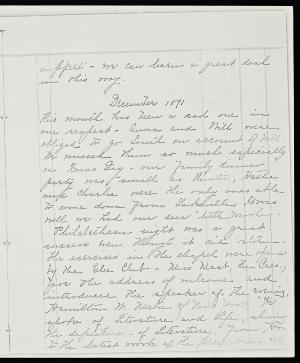 support - we can learn a great deal
in this way.
December 1891
This month has been a sad one in
one respect - Emma and Will were
obliged to go South on account of Will.
We missed them so much especially
on Xmas Day - our family dinner
party was small as Minnie, Hattie
and Charlie were the only ones able
to come down from Lakeville. Xmas
will we had our dear little Mother.
Philalethean night was a great
success even though it did storm.
The exercises in the chapel were opened
by the Glee Club - Miss West, the Pres.,
gave the address of welcome and
introduced the speaker of the evening,
Hamilton W. Mabie of New York. "He
spoke of Literature and Life, showing
the dependence of Literature, from
to the latest works of the present